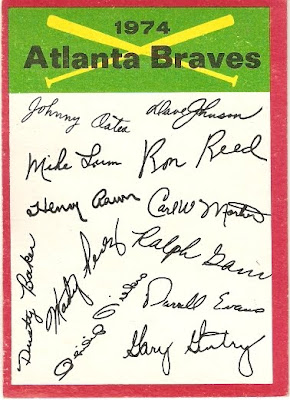 1974
Atlanta Braves
Johnny Oates
Dave Johnson
Mike Lum
Ron Reed
Henry Aaron
Carl W Morton
Ralph Garr
Dusty Baker
Darrell Evans
Gary Gentry